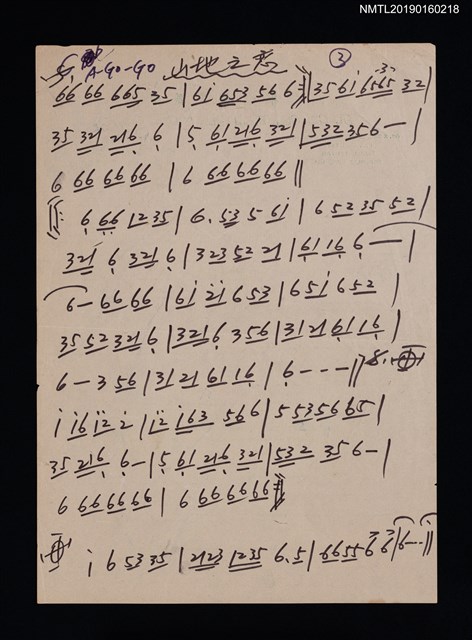 NMTL20190160218
G A-GO-GO 山地之恋 3
66 66 665 35 | 61 653 56 6 || 35 61 6565 32 |
35 321 216 6 | 5 61 216 321 | 532 356 — |
6 66 66 66 | 6 66 66 66 ||
||: 6 66 12 35 | 6. 53 5 61 | 6 52 35 52 |
321 6 321 6 | 323 52 21 | 61 16 6 — |
6 — 66 66 | 61 21 6 53 | 6 51 6 52 |
35 52 321 6 | 321 6 3 56 | 31 21 61 16 |
6 — 3 56 | 31 21 61 16 | 6 - - - ||
1 16 12 2 | 12 163 56 6 | 5 53 56 65 |
35 216 6 — | 5 61 216 321 | 532 35 6 — |
6 66 66 66 | 6 66 66 66 ||
1 6 53 35 | 2123 1235 6.5 | 66 55 6 6 | 6 - - - ||